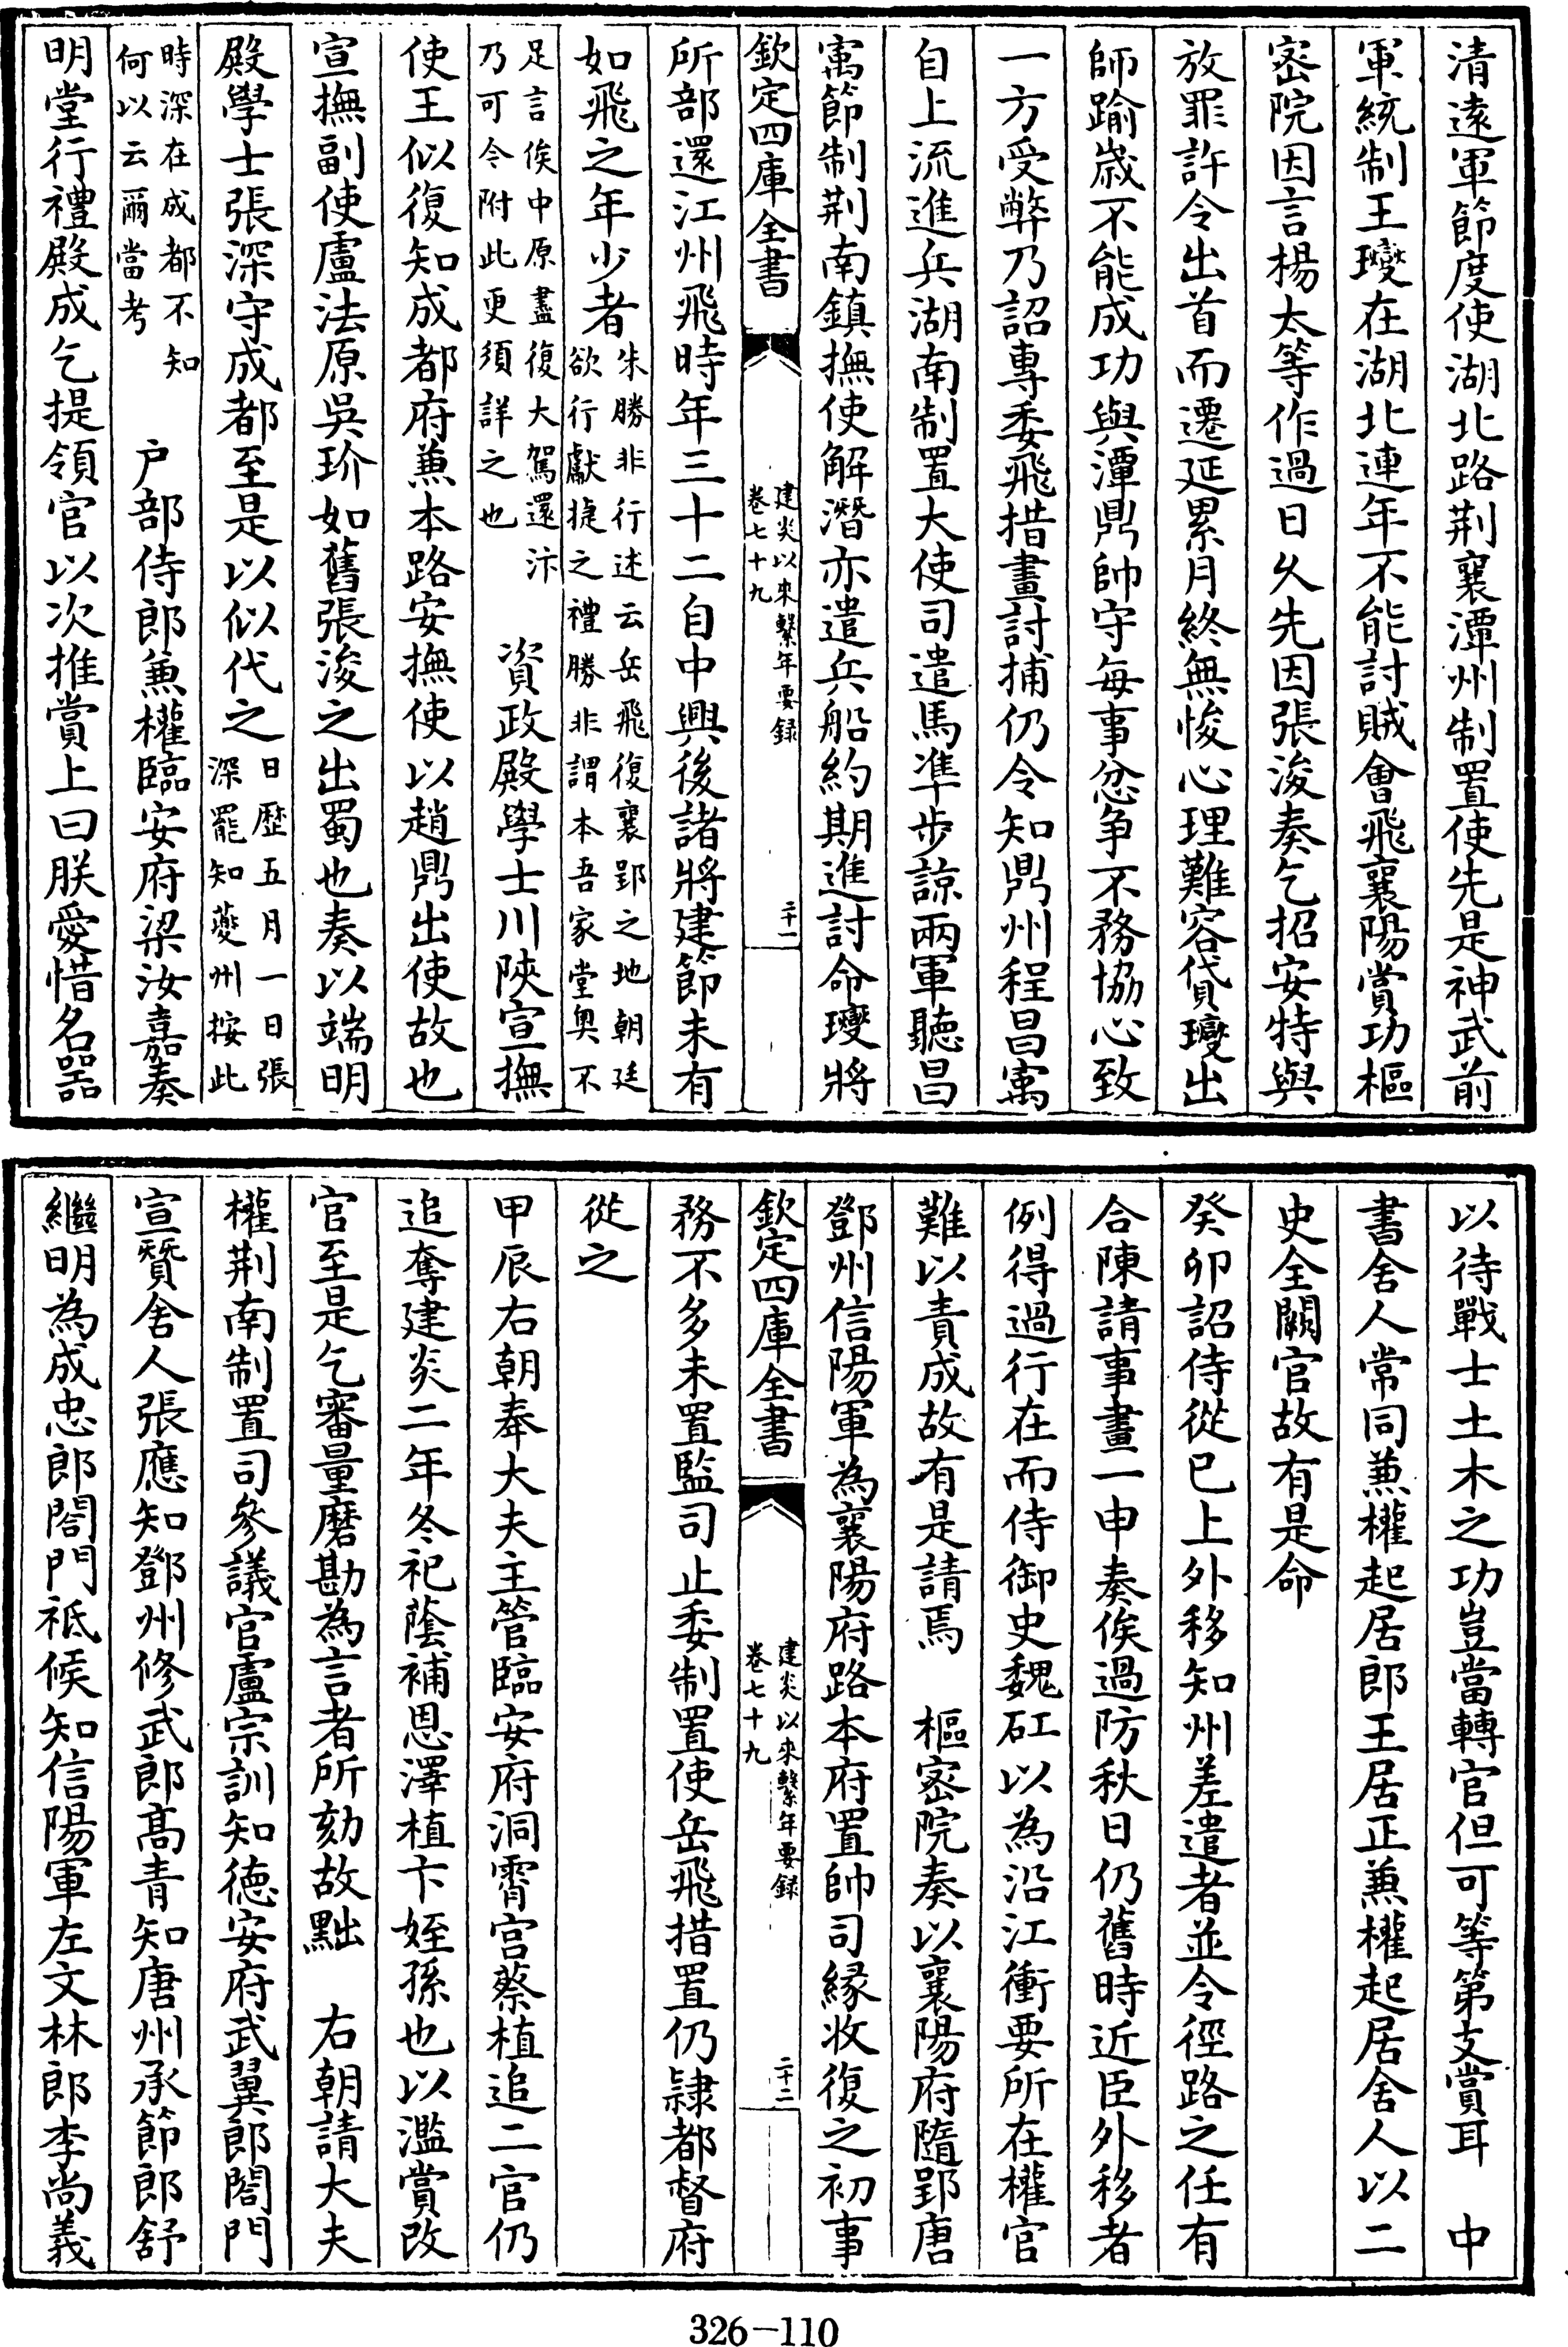 清遠軍節度使湖北路荆襄潭州制置使先是神武前
軍統制王𤫉在湖北連年不能討賊會飛襄陽賞功樞
宻院因言楊太等作過日乆先因張浚奏乞招安特與
放罪許令出首而遷延累月終無悛心理難容貸𤫉出
師踰嵗不能成功與潭鼎帥守每事忿争不務協心致
一方受弊乃詔専委飛措畫討捕仍令知鼎州程昌㝢
自上流進兵湖南制置大使司遣馬凖步諒兩軍聽昌
㝢節制荆南鎮撫使解潛亦遣兵船約期進討命𤫉將
欽定四庫全書
建炎以來繫年要録
卷七十九
二十一
所部還江州飛時年三十二自中興後諸將建節未有
如飛之年少者朱勝非行述云岳飛復襄郢之地朝廷
欲行獻捷之禮勝非謂本吾家堂奥不
足言俟中原盡復大駕還汴
乃可令附此更須詳之也
資政殿學士川陜宣撫
使王似復知成都府兼本路安撫使以趙鼎出使故也
宣撫副使盧法原吳玠如舊張浚之出蜀也奏以端明
殿學士張深守成都至是以似代之日歴五月一日張
深罷知夔州按此
時深在成都不知
何以云爾當考
户部侍郎兼權臨安府梁汝嘉奏
明堂行禮殿成乞提領官以次推賞上曰朕愛惜名器
以待戰士土木之功豈當轉官但可等第支賞耳　中
書舍人常同兼權起居郎王居正兼權起居舍人以二
史全闕官故有是命
癸卯詔侍從已上外移知州差遣者並令徑路之任有
合陳請事畫一申奏俟過防秋日仍舊時近臣外移者
例得過行在而侍御史魏矼以為沿江衝要所在權官
難以責成故有是請焉　樞宻院奏以襄陽府隨郢唐
鄧州信陽軍為襄陽府路本府置帥司縁收復之初事
欽定四庫全書
建炎以來繫年要録
卷七十九
二十二
務不多未置監司止委制置使岳飛措置仍隷都督府
從之
甲辰右朝奉大夫主管臨安府洞霄宫蔡植追二官仍
追奪建炎二年冬祀蔭補恩澤植卞姪孫也以濫賞改
官至是乞審量磨勘為言者所劾故黜　右朝請大夫
權荆南制置司參議官盧宗訓知德安府武翼郎閤門
宣贊舍人張應知鄧州修武郎髙青知唐州承節郎舒
繼明為成忠郎閤門祇候知信陽軍左文林郎李尚義
326-110